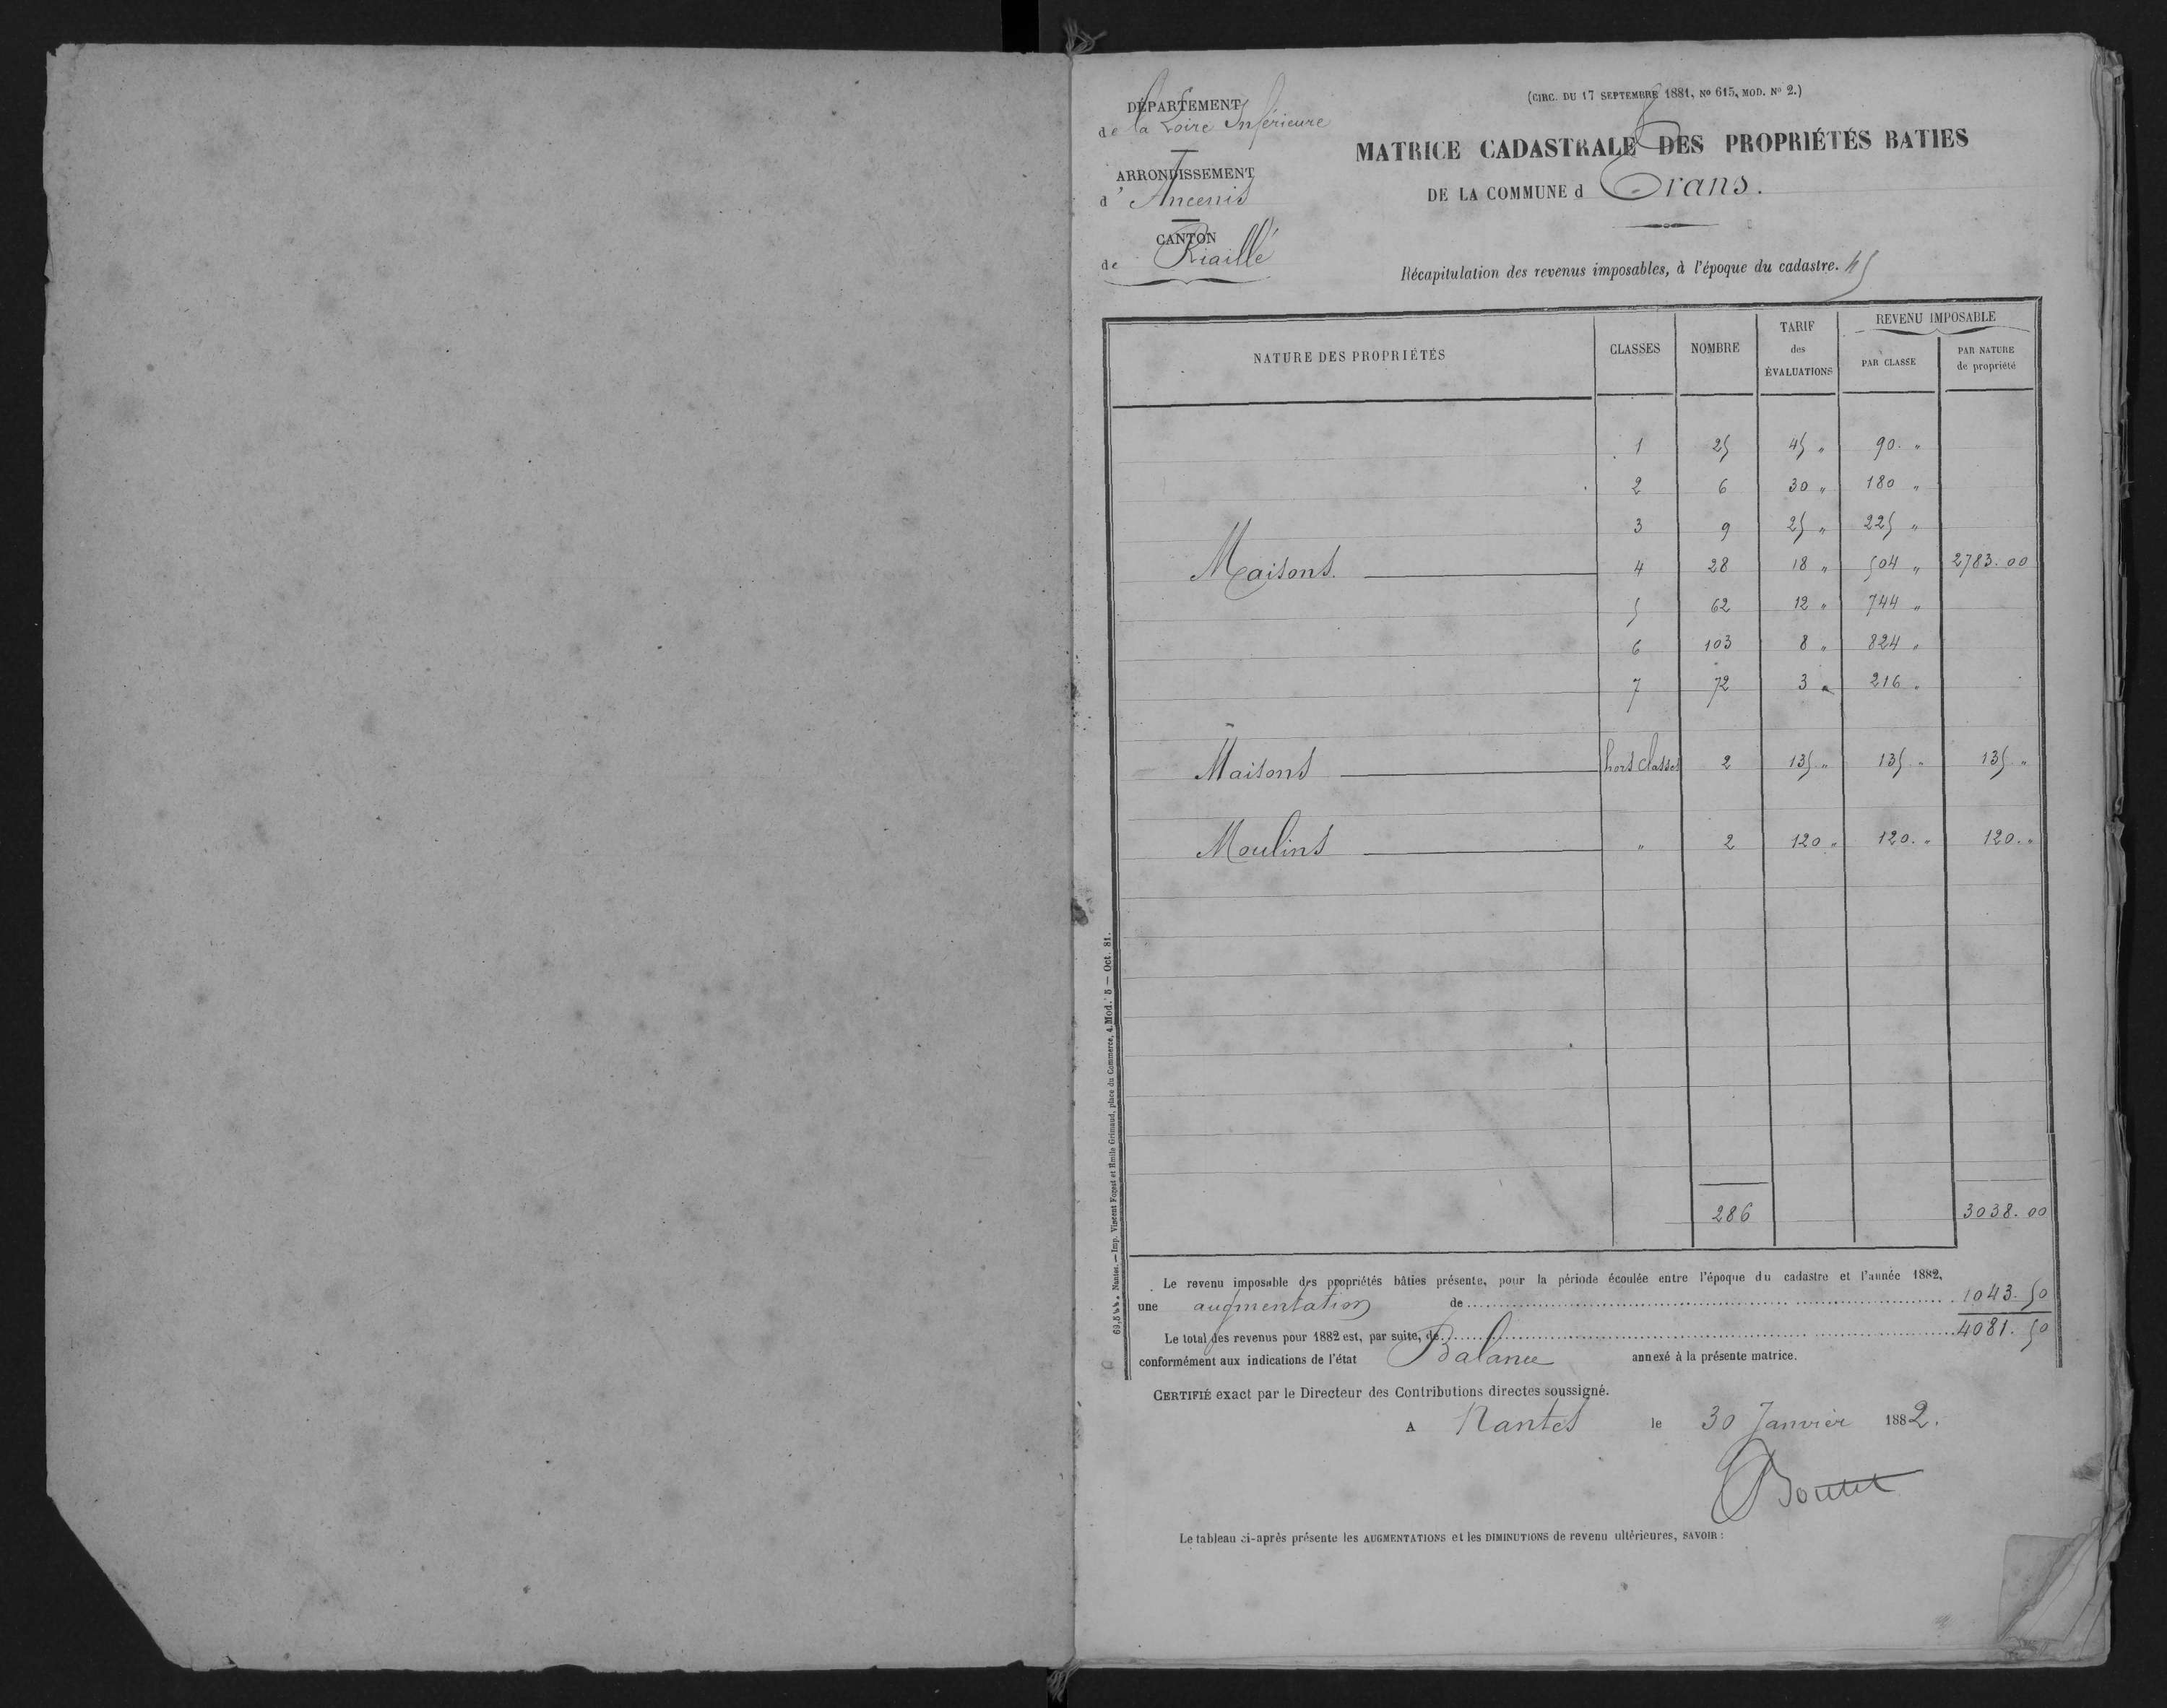 (CIRC. DU 17 SEPTEMBRE 1881, No 615, MOD. No 2.)
DÉPARTEMENT
de la Loire Inférieure
ARRONDISSEMENT
d'Ancenis
CANTON
de Riaillé
MATRICE CADASTRALE DES PROPRIÉTÉS BATIES
DE LA COMMUNE d Trans.
Récapitulation des revenus imposables, à l'époque du cadastre.
NATURE DES PROPRIÉTÉS CLASSES NOMBRE TARIF des ÉVALUATIONS REVENU IMPOSABLE
PAR CLASSE PAR NATURE de propriété
1 25 45 " 90. "
2 6 30 " 180 "
3 9 25 " 225 "
Maisons. 4 28 18 " 504 " 2783.00
5 62 12 " 744 "
6 103 8 " 824 "
7 72 3 " 216 "
Maisons hors classes 2 135 " 135 " 135 "
Moulins " 2 120 " 120. " 120. "
286 3038.00
Le revenu imposable des propriétés bâties présente, pour la période écoulée entre l'époque du cadastre et l'année 1882,
une augmentation de 1043.50
Le total des revenus pour 1882 est, par suite, de 4081.50
conformément aux indications de l'état Balance annexé à la présente matrice.
CERTIFIÉ exact par le Directeur des Contributions directes soussigné.
A Nantes le 30 Janvier 1882.
Le tableau ci-après présente les AUGMENTATIONS et les DIMINUTIONS de revenu ultérieures, SAVOIR :
Nantes. — Imp. Vincent Forest et Emile Grimaud, place du Commerce, 4. Mod. 5 — Oct. 81.